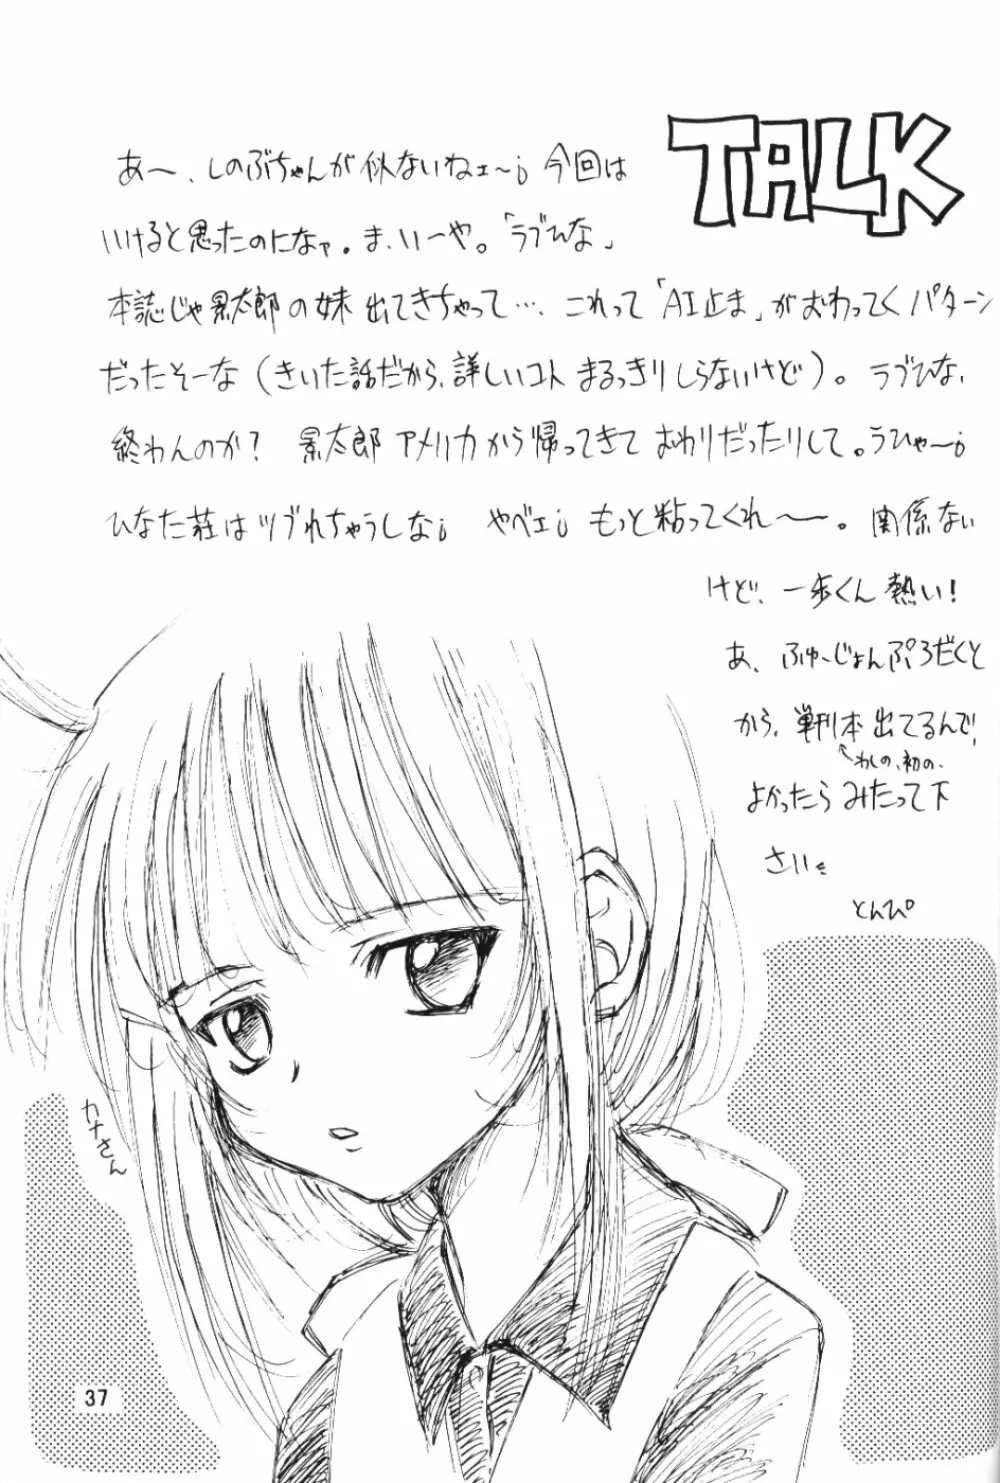 TALK
あ〜、しのぶちゃんが似ないねェ〜。今回は
いけると思ったのになァ。ま、いーや。「ラブひな」
本誌じゃ景太郎の妹出てきちゃって…、これって「AI止ま」がおわってくパターン
だったそーな(きいた話だから、詳しいコトまるっきりしらないけど)。ラブひな、
終わんのか? 景太郎アメリカから帰ってきておわりだったりして。うひゃ〜。
ひなた荘はツブれちゃうしな。 やべェ。 もっと粘ってくれ〜。関係ない
けど、一歩くん熱い!
あ、ふゅーじょんぷろだくと
から、単刊本出てるんで、
↑わしの、初の、
よかったらみたって下
さい
とんぴ
カナさん
37